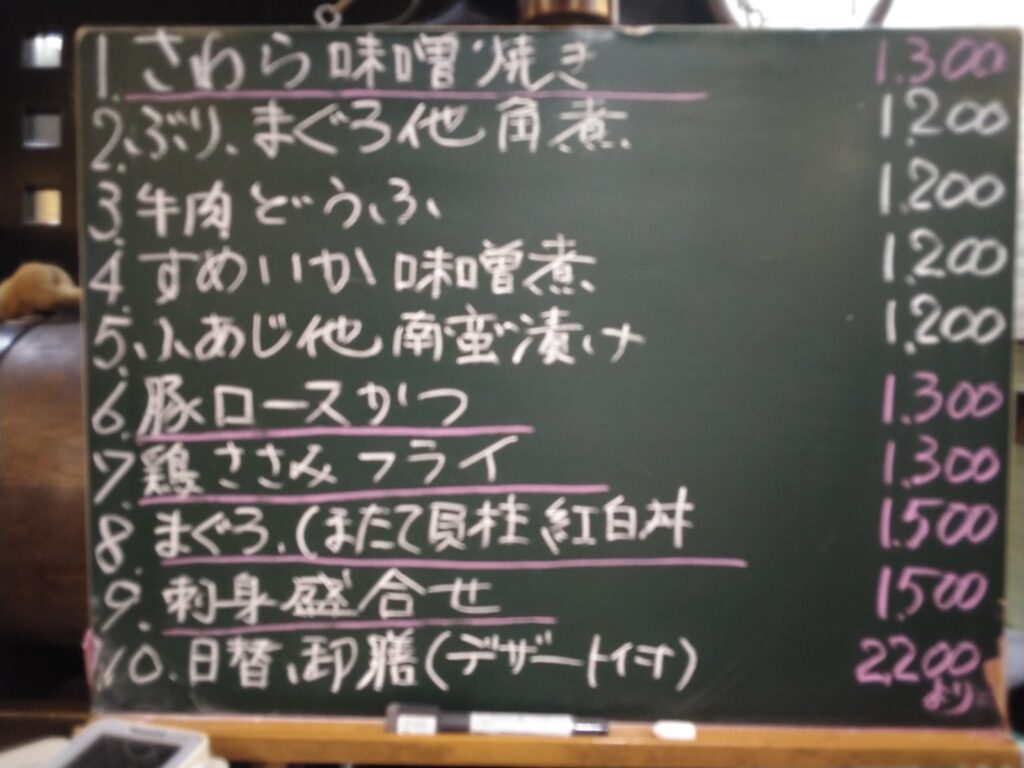 1. さわら味噌焼き 1.300
2. ぶり、まぐろ他角煮 1.200
3. 牛肉どうふ 1.200
4. するめいか味噌煮 1.200
5. 小あじ他南蛮漬け 1.200
6. 豚ロースかつ 1.300
7. 鶏ささみフライ 1.300
8. まぐろ、ほたて貝柱紅白丼 1.500
9. 刺身盛合せ 1.500
10. 日替御膳(デザート付) 2.200
より